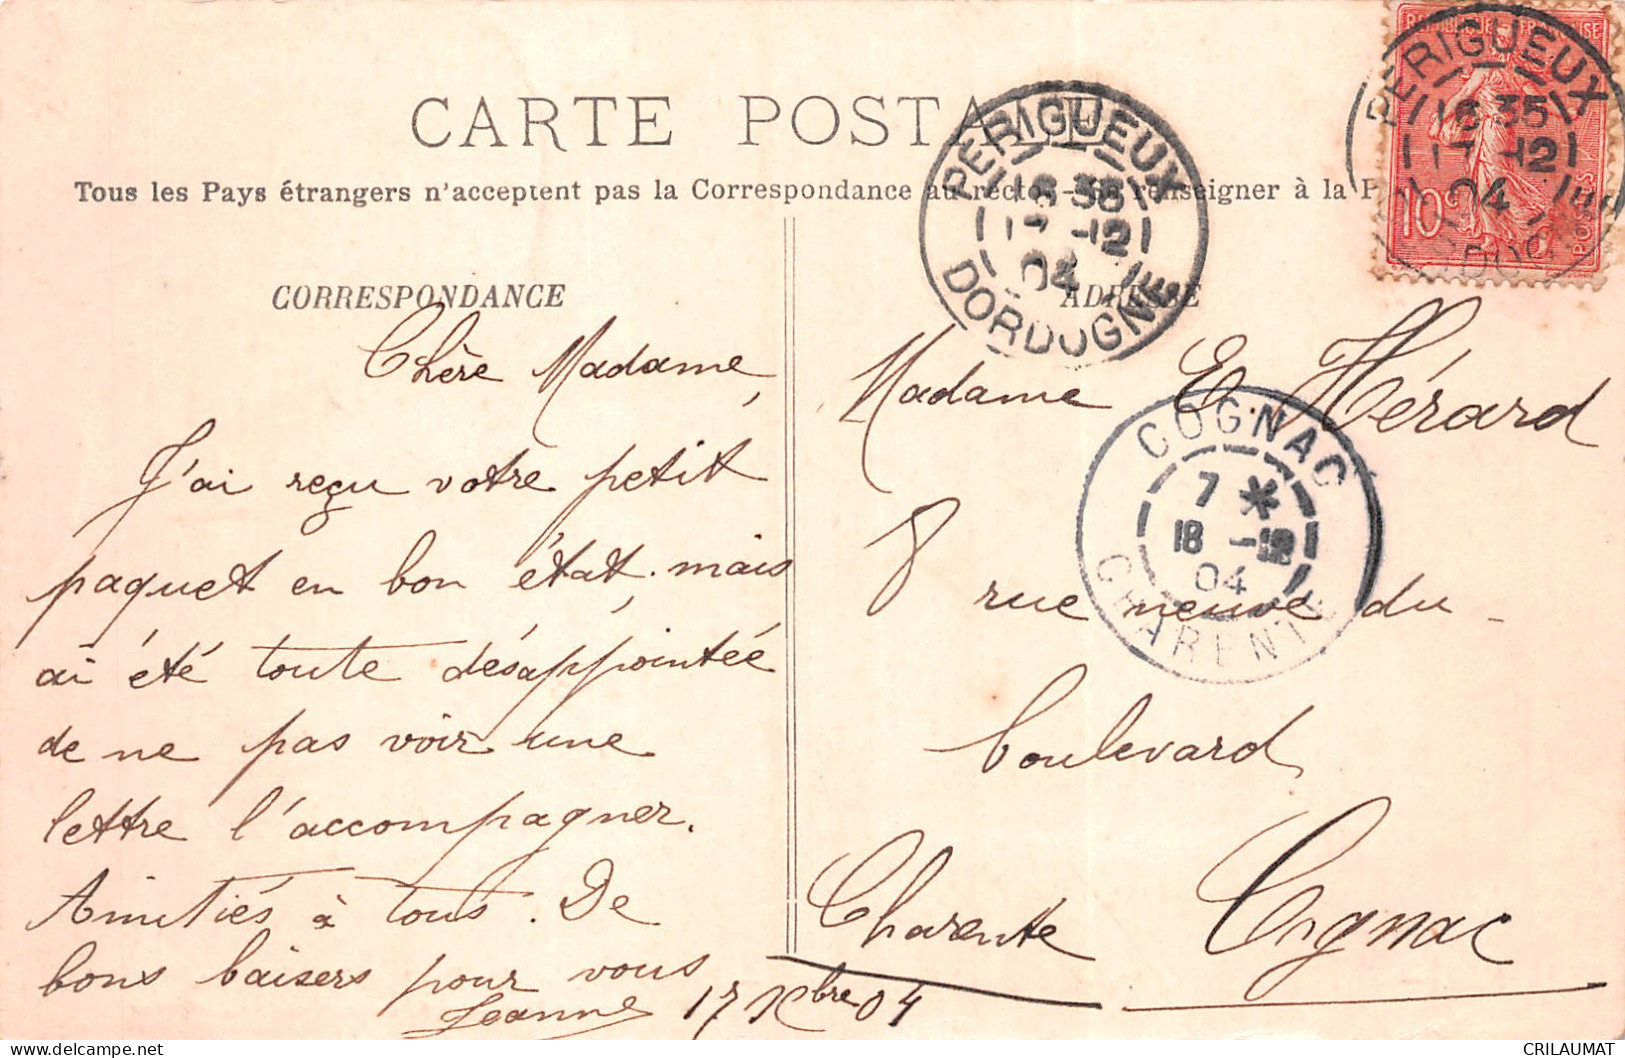 CARTE POSTALE
Tous les Pays étrangers n'acceptent pas la Correspondance au recto - Se renseigner à la P
CORRESPONDANCE
Chère Madame,
J'ai reçu votre petit
paquet en bon état, mais
ai été toute désappointée
de ne pas voir une
lettre l'accompagner.
Amitiés à tous. De
bons baisers pour vous
Jeanne 17 Xbre 04
ADRESSE
Madame E. Hérard
8 rue neuve du
boulevard
Cognac
Charente
PERIGUEUX
16 35
17 -12
04
DORDOGNE
COGNAC
7 *
18 -12
04
CHARENTE
REPUBLIQUE FRANÇAISE
10c
POSTES
PERIGUEUX
16 35
17 -12
04
CRILAUMAT